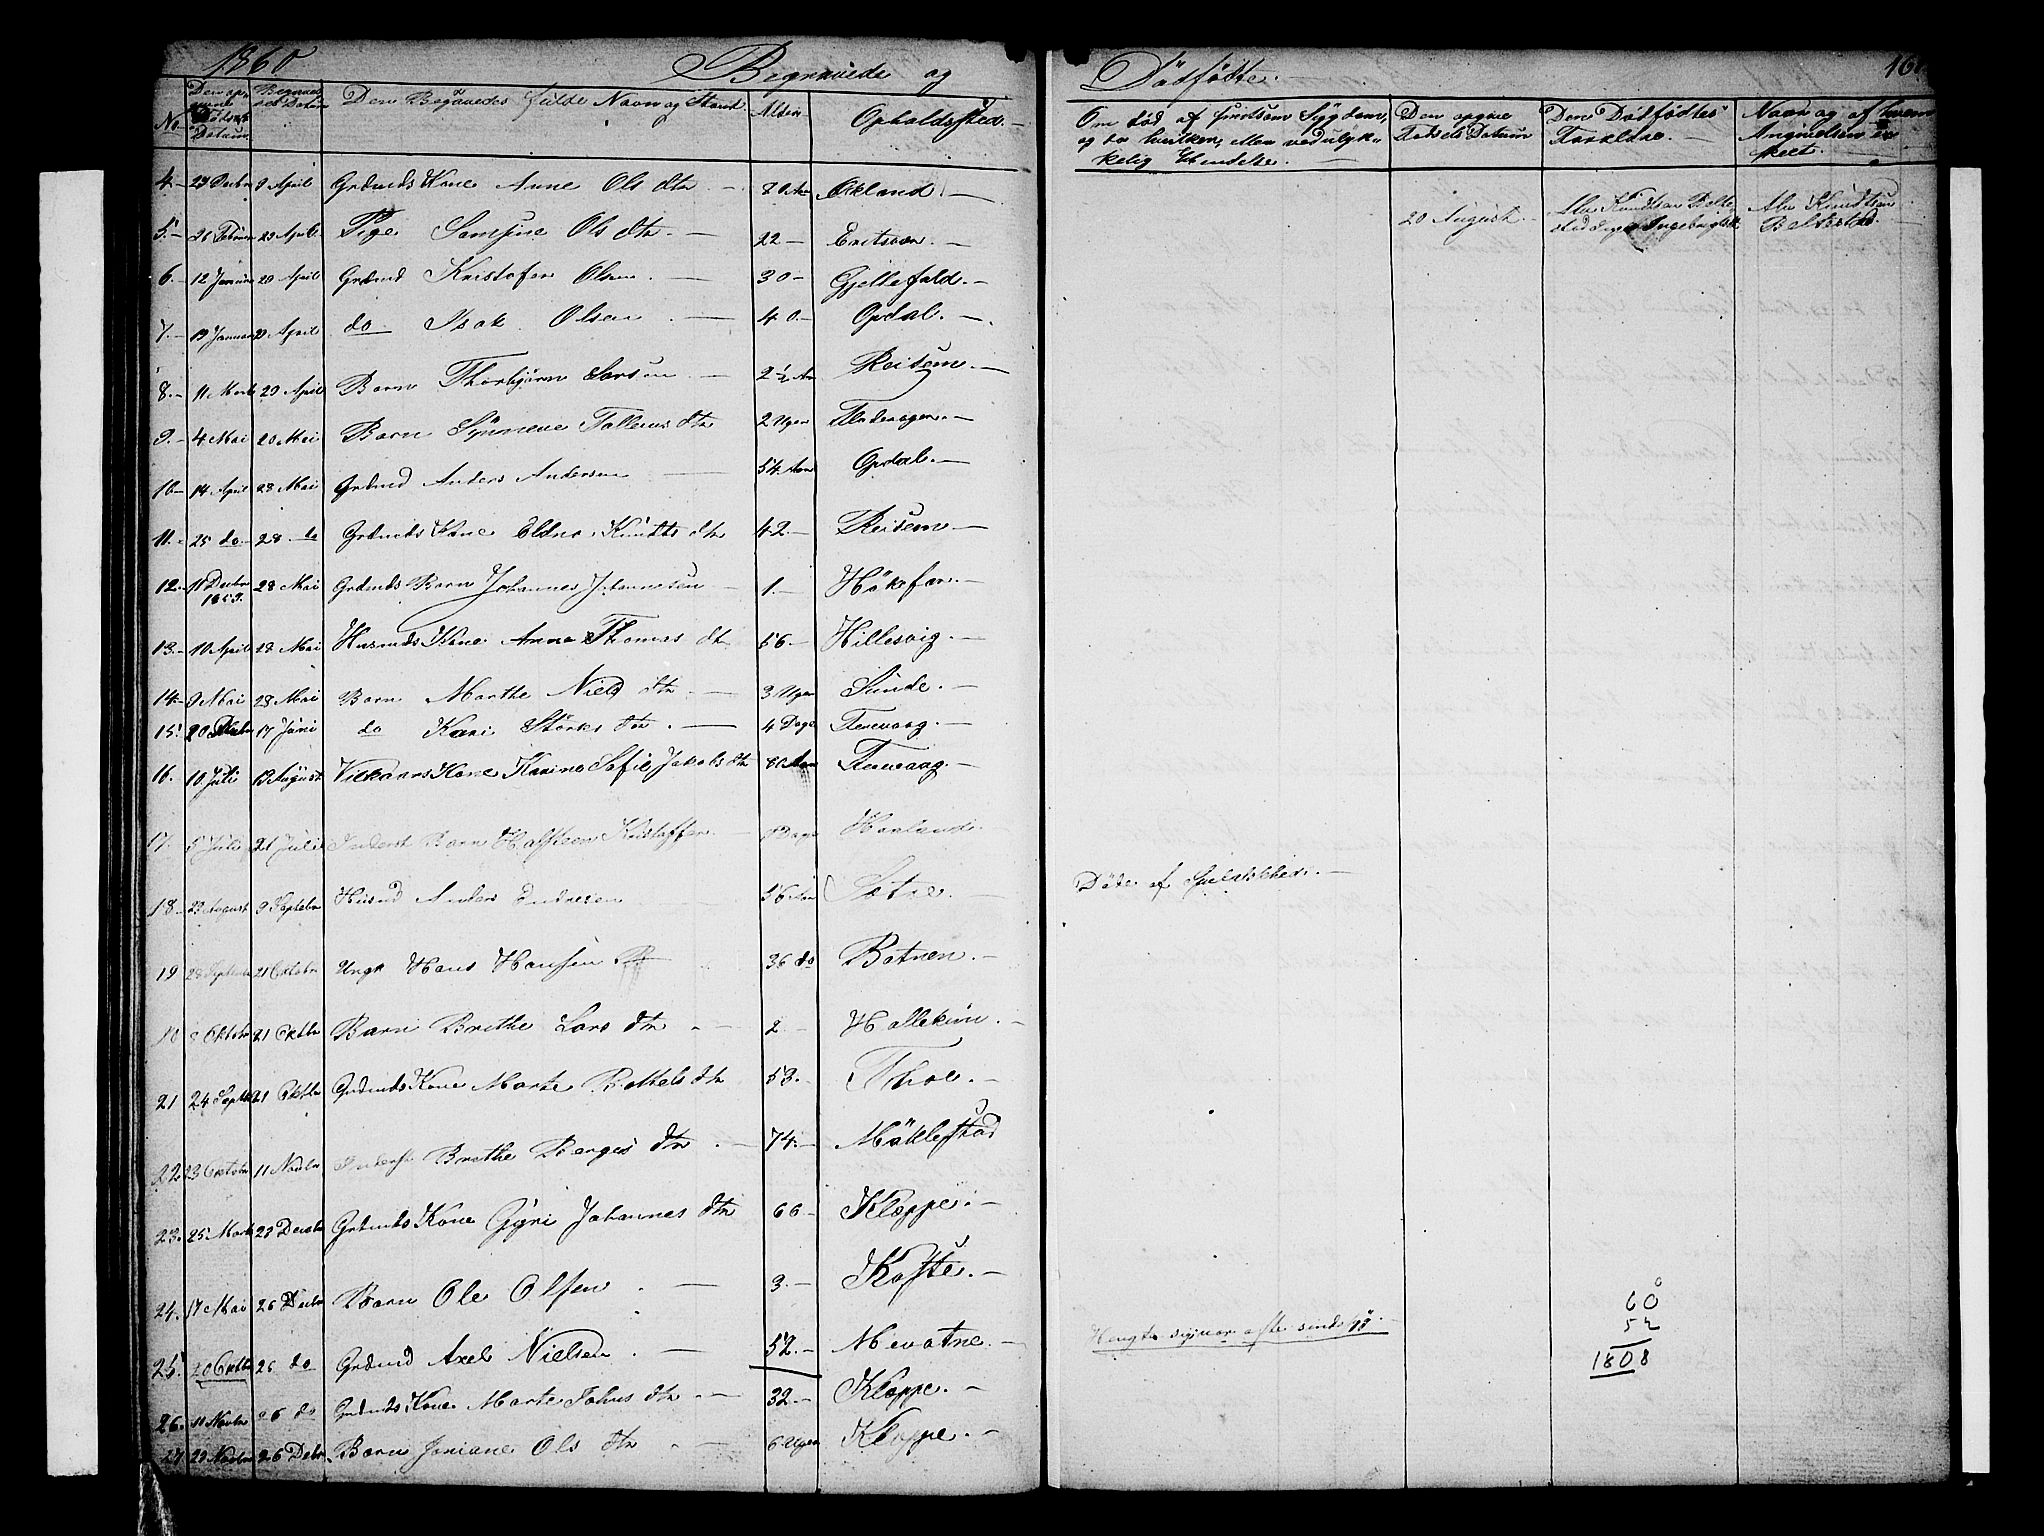 1860 Begravede og Dødfødte. 161
No Den opgivne Dødsdatum Begravelses Datum Den Begravedes fulde Navn og Stand. Alder Opholdssted. Om død af smitsom Sygdom, og da hvilken, eller ved ulyk- kelig Hendelse. Den opgivne Dødsdatum Den Dødfødtes Forældre. Naar og af hvem Anmeldelsen er skeet.
4. 27 Decbr 9 April Grdmds Kone Anne Ols dtr 80 Aar Økland
20 August Belte- stad Ingebrigtdtr Knudtsen Beltestad
5. 26 Februar 29 April Pige Samsine Ols dtr 22 Eritsvær.
6. 12 Januar 29 April Grdmd Kristofer Olsen 30 Gjeltefald.
7. 19 Januar 29 April do Isak Olsen 40. Opdal.
8. 11 Marts 29 April Barn Thorbjørn Larsen 2½ Aar Reisem
9. 4 Mai 20 Mai Barn Synneve Tollevs dtr 2 Uger
10 14 April 28 Mai Grdmd Anders Andersen 54. Aar Opdal.
11. 25 do 28 do Grdmds Kone Knudts dtr 42. Reisem
12. 11 Decbr 1859. 28 Mai Grdmds Barn Johannes Johannesen 1. Høkefor.
13. 10 April 28 Mai Husmds Kone Anna Thomas dtr 56 Hillesvig.
14 9 Mai 28 Mai Barn Marthe Niels dtr 3 Uger Sunde.
15. 20 17 Juni do Kari Størks dtr 4 Dage Terevaag.
16. 10 Juli 19 August Kone Karine Sofie Jakobs dtr 80 Aar Terevaag.
17. 5 Juli 21 Juli Inderst Barn Halsteen Kristoffer Dage Haaland.
18 23 August 9 Septbr Husmd Anders Endresen 56 Aar Sætre. Døde af Spedalskhed.
19 28 Septembr 21 Oktobr Ungk Hans Hansen 36 do Botnen.
10 8 Oktobr 21 Oktbr Barn Brethe Lars dtr 2 Hallekim.
21 24 Septbr 21 Oktbr Grdmds Kone Marte Bottels dtr 53. Thoe.
22. 23 Oktobr 11 Novbr Inderst Brethe Berges dtr 74. Møklestad
23. 25 Marts 28 Decbr Grdmds Kone Gyri Johannes dtr 66 Kloppe.
24. 17 Mai 26 Decbr Barn Ole Olsen 3. Kaste.
25. 20 Oktbr 26 do Grdmd Axel Nielsen 52. Mevatne.
60
52
1808
26. 11 Novbr 26 do Grdmds Kone Marte Johns dtr 32 Kloppe.
27 29 Novbr 26 Debr. Barn Joniane Ols dtr 6 Uger Kloppe.